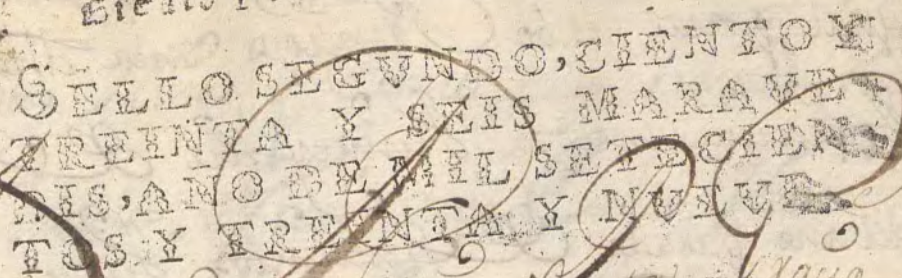 SELLO SEGVNDO, CIENTO Y
TREINTA Y SEIS MARAVE
DIS, AÑO DE MIL SETECIEN
TOS Y TREINTA Y NUEVE